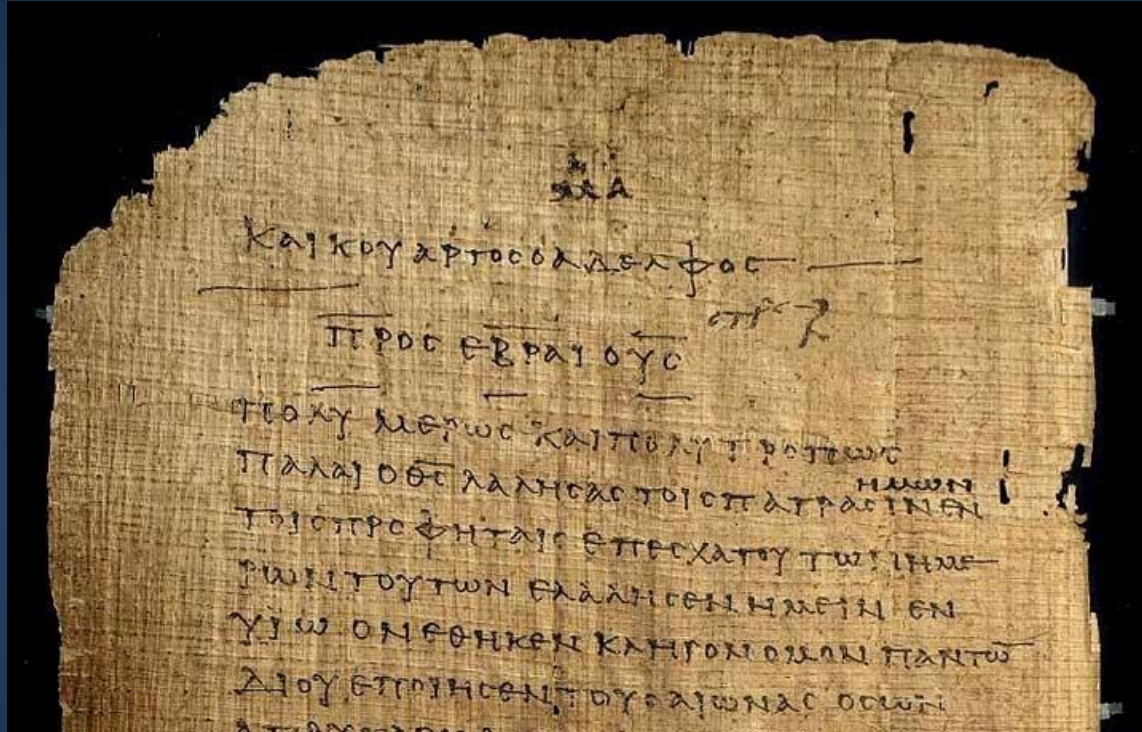 ΜΑ
ΚΑΙ ΚΟΥΑΡΤΟΣ Ο ΑΔΕΛΦΟΣ
ΠΡΟΣ ΕΒΡΑΙΟΥΣ
ΠΟΛΥΜΕΡΩΣ ΚΑΙ ΠΟΛΥΤΡΟΠΩΣ
ΠΑΛΑΙ Ο ΘΣ ΛΑΛΗΣΑΣ ΤΟΙΣ ΠΑΤΡΑΣΙΝ ΗΜΩΝ ΕΝ
ΤΟΙΣ ΠΡΟΦΗΤΑΙΣ ΕΠ ΕΣΧΑΤΟΥ ΤΩΝ ΗΜΕ
ΡΩΝ ΤΟΥΤΩΝ ΕΛΑΛΗΣΕΝ ΗΜΕΙΝ ΕΝ
ΥΙΩ ΟΝ ΕΘΗΚΕΝ ΚΛΗΡΟΝΟΜΟΝ ΠΑΝΤΩ
ΔΙ ΟΥ ΕΠΟΙΗΣΕΝ ΤΟΥΣ ΑΙΩΝΑΣ ΟΣ ΩΝ